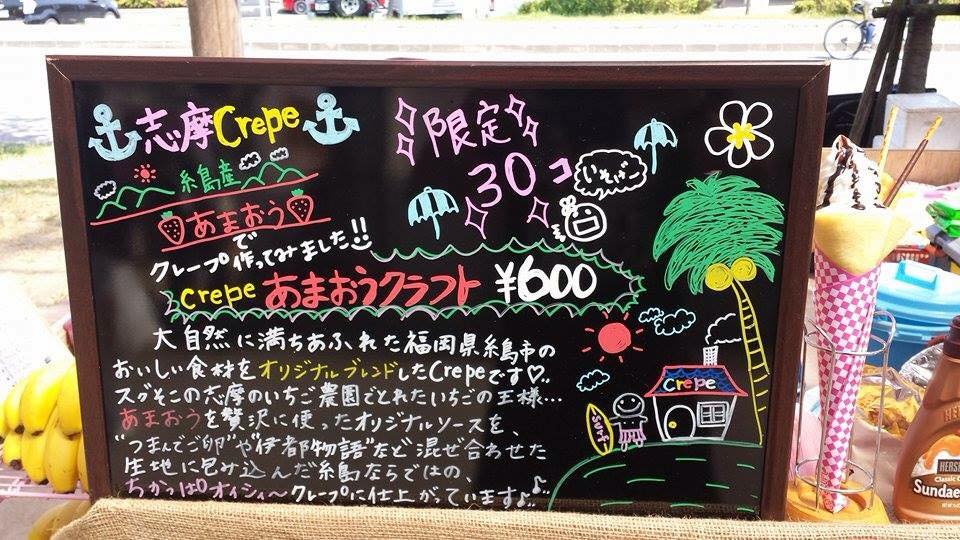 志摩Crepe
限定
30コ
いそげー
糸島産
あまおう
で
クレープ作ってみました!!
crepe あまおうクラフト ¥600
大自然に満ちあふれた福岡県糸島市の
おいしい食材をオリジナルブレンドしたCrepeです♡..
スグそこの志摩のいちご農園でとれたいちごの王様…
あまおうを贅沢に使ったオリジナルソースを、
"つまんでご卵"や"伊都物語"など混ぜ合わせた
生地に包み込んだ糸島ならではの、
ちかっぱオイシィ〜クレープに仕上がっています♪♪
crepe
Surf
HERSH
Classic C
Sundae